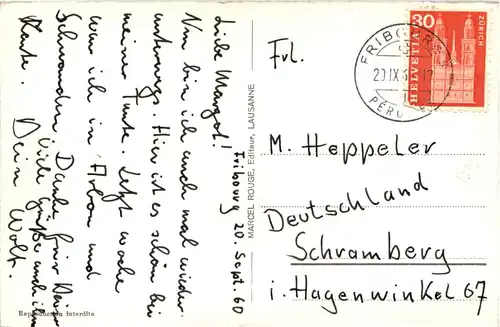 Fribourg 20. Sept. 60
Liebe Margot!
Nun bin ich auch mal wieder
unterwegs. Hier ist es schön bei
meiner Tante. Letzt Woche
war ich in Arbon und
Schwanden Danke für Deine
Karte. Viele Grüße auch
Dein Wolf.
Reproduction interdite
MARCEL ROUGE, Editeur, LAUSANNE
Frl.
M. Heppeler
Deutschland
Schramberg
i. Hagenwinkel 67
FRIBOURG
20.IX.
HELVETIA
30
ZÜRICH